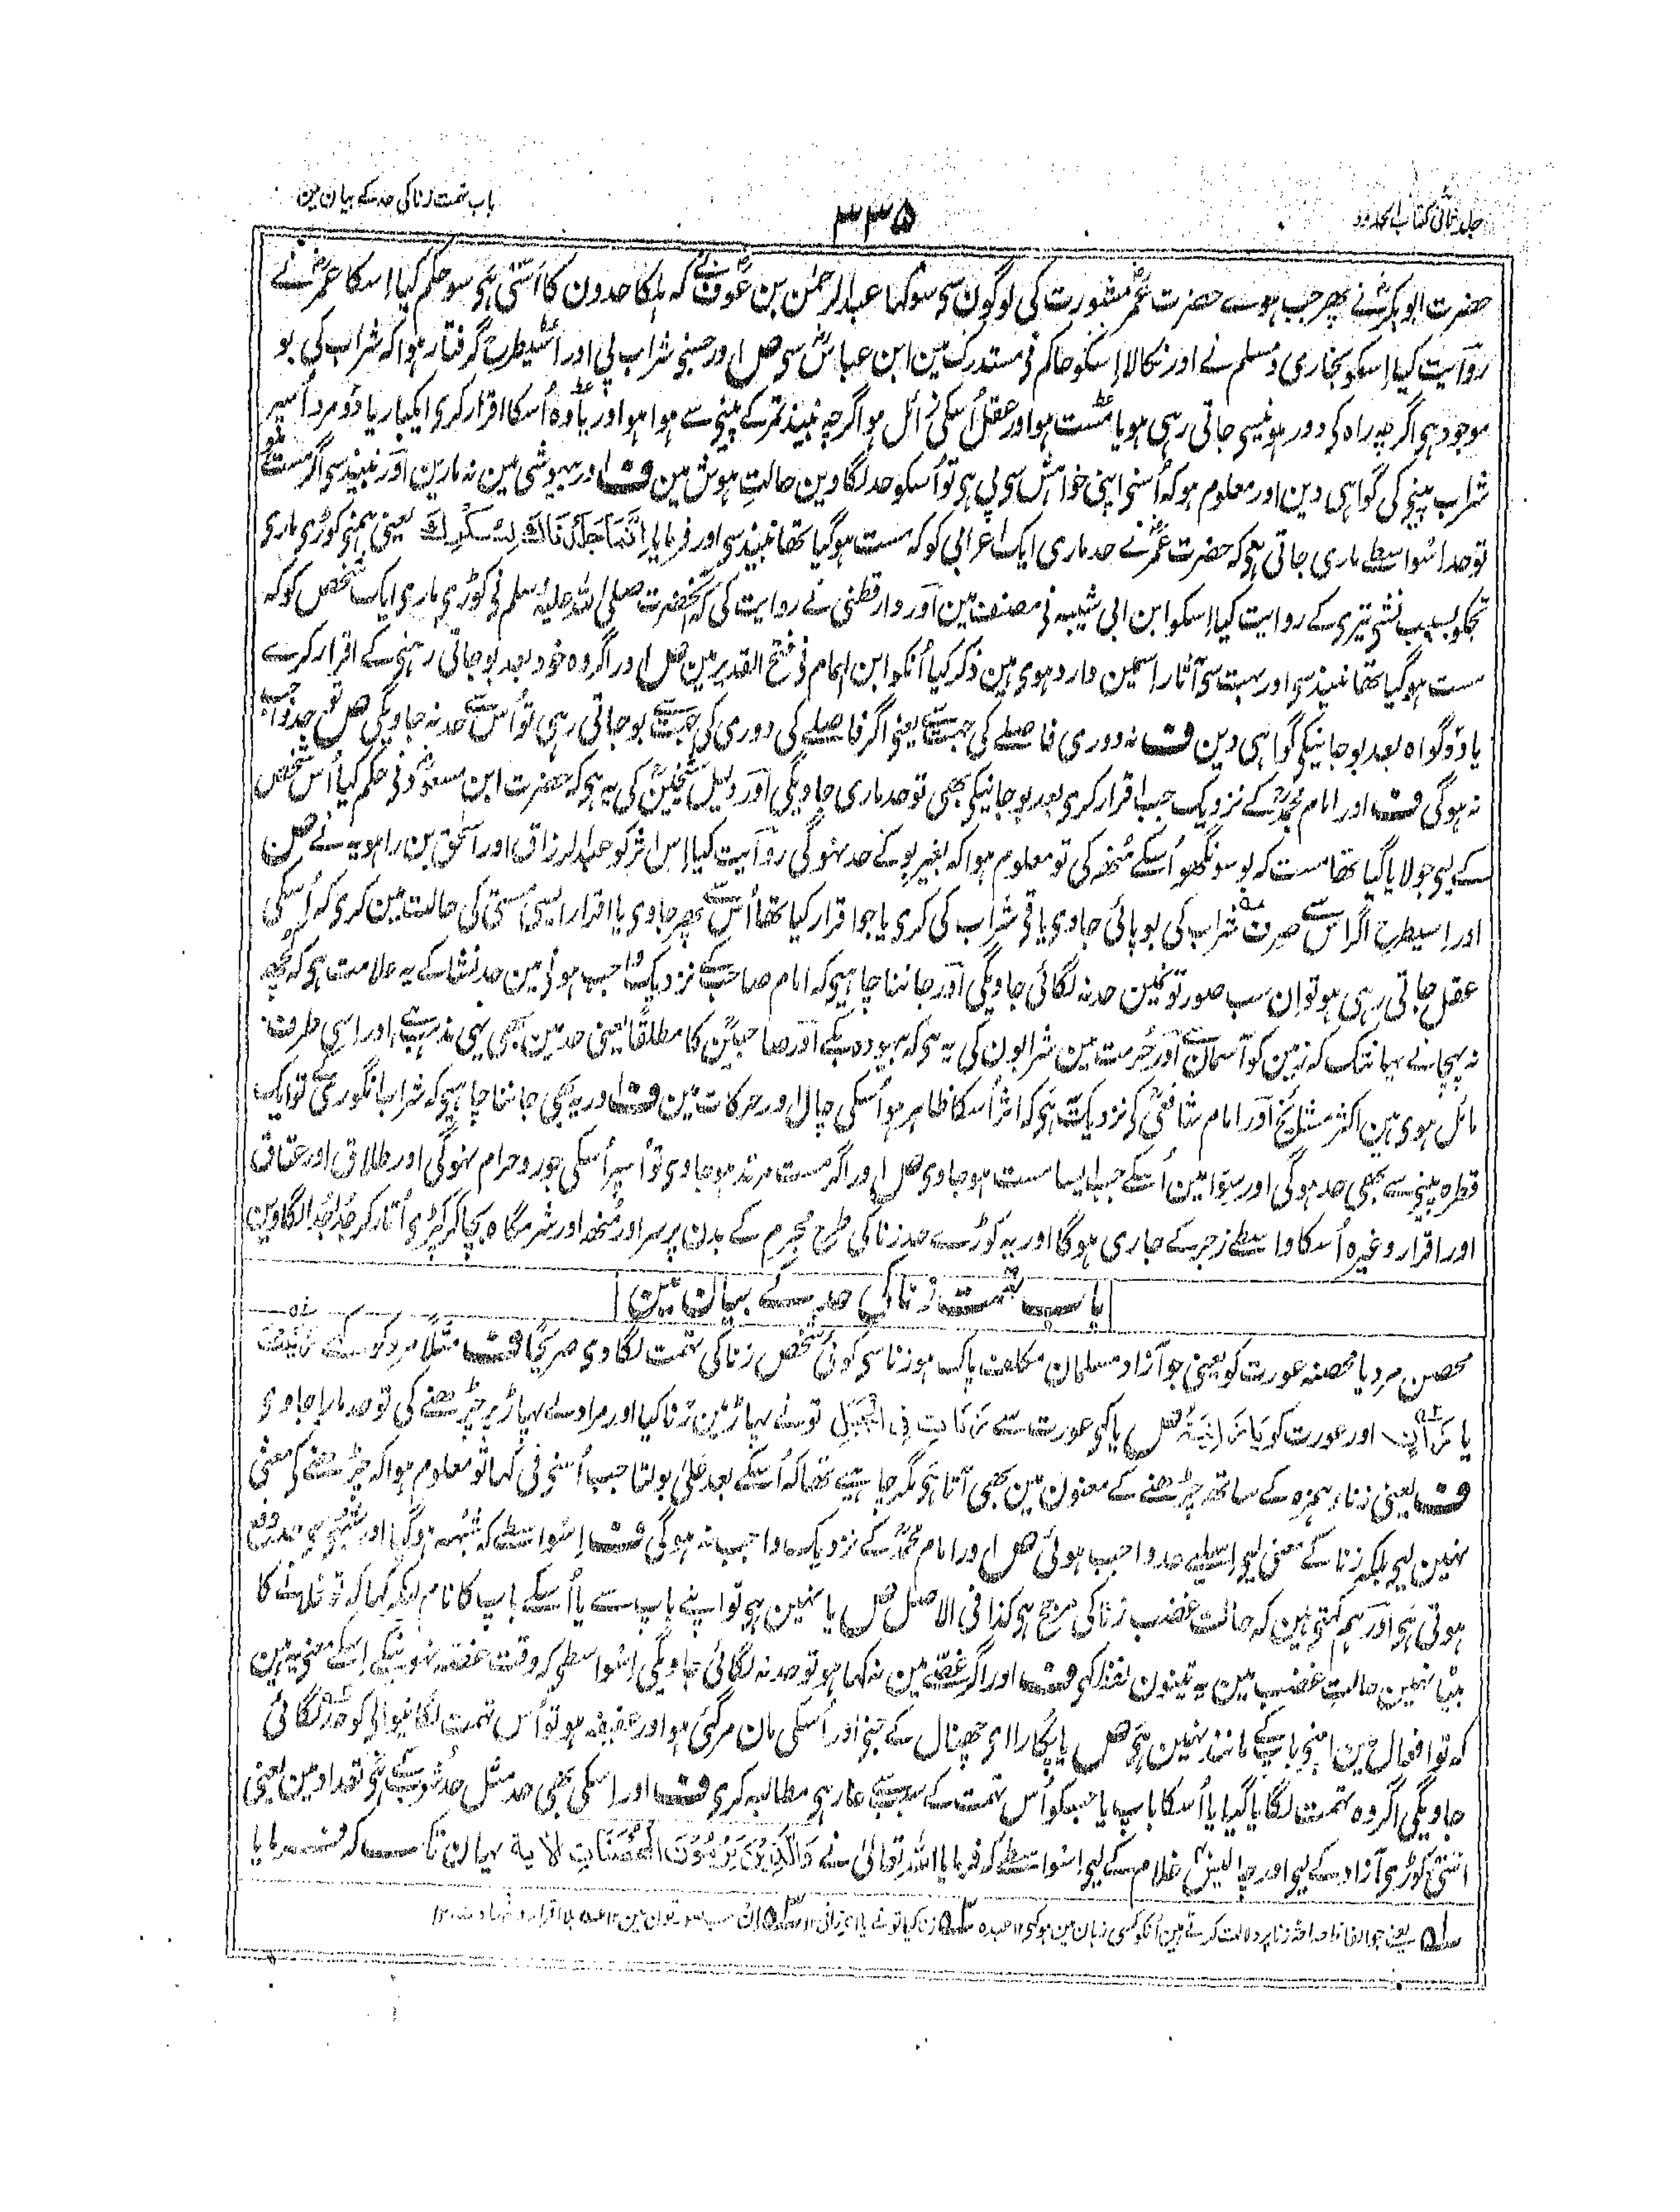 جلد ثانی کتاب الحدود
۳۳۵
باب تہمت زنا کی حد کے بیان مین
حضرت ابو بکرؓ نے پھر جب ہوے حضرت عمرؓ مشورت کی لوگون سی سو کہا عبد الرحمٰن بن عوفؓ نے کہ ہلکا حدون کا اَسّی ہی سو حکم کیا اِسکا عمرؓ نے
روآیت کیا اِسکو بخاری و مسلم نے اور نکالا اِسکو حاکم نی مستدرک مین ابن عباسؓ سی ص اور جسنی شراب پی اور اسیطرح گرفتار ہوا کہ شراب کی بو
موجود ہی اگرچہ راہ کی دور ہونیسی جاتی رہی ہو یا مست ہو اور عقل اُسکی زائل ہو اگرچہ نبیذ تمر کے پینی سے ہوا ہو اور یا وہ اُسکا اقرار کری ایکبار یا دو مرد اُسپر
شراب پینی کی گواہی دین اور معلوم ہو کہ اُسنی اپنی خواہش سی پی ہی تو اُسکو حد لگاوین حالتِ ہوش مین ف اور بیہوشی مین نہ مارین اور نبیذ سی اگر مست ہو
تو حد اسواسطے ماری جاتی ہی کہ حضرت عمرؓ نے حد ماری ایک اعرابی کو کہ مست ہو گیا تھا نبیذ سی اور فرمایا اِنَّمَا جَلَدْنَاكَ لِسُكْرِكَ یعنی ہمنی کوڑی ماری
تجکو بسبب نشی تیری کے روایت کیا اِسکو ابن ابی شیبہ نی مصنف مین اور دارقطنی نے روایت کی کہ آنحضرت صلی اللہ علیہ وسلم نی کوڑی ماری ایک شخص کو کہ
مست ہو گیا تھا نبیذ سی اور بہت سی آثار اسمین وارد ہوی ہین ذکر کیا اُنکو ابن الہمام نی فتح القدیر مین ص اور اگر وہ خود بعد بو جاتی رہنی کے اقرار کرے
یا دو گواہ بعد بو جانیکی گواہی دین ف نہ دوری فاصلے کی جہت سے یعنی اگر فاصلے کی دوری کی جہت سے بو جاتی رہی تو اُس سے حد نہ جاویگی ص تو حد واجب
نہ ہوگی ف اور امام محمدؒ کے نزدیک جب اقرار کری بعد بو جانیکی بھی تو حد ماری جاویگی اور دلیل شیخینؒ کی یہ ہی کہ حضرت ابن مسعودؓ نی حکم کیا اُس شخص
کے لیی جو لایا گیا تھا مست کہ بو سونگھو اُسکے مُنھ کی تو معلوم ہوا کہ بغیر بو کے حد نہوگی روآیت کیا اِس اثر کو عبد الرزاق اور اسحٰق بن راہویہ نے ص
اور اسیطرح اگر اس سے صرف شراب کی بو پائی جاوی یا قی شراب کی کری یا جو اقرار کیا تھا اُس سے پھر جاوی یا اقرار ایسی مستی کی حالت مین کری کہ اُسکی
عقل جاتی رہی ہو تو اِن سب صورتونمین حد نہ لگائی جاویگی اور جاننا چاہیی کہ امام صاحب کے نزدیک واجب ہونی مین حد نشا کے یہ علامت ہی کہ کچھ
نہ پہچانے یہانتک کہ زمین کو آسمان سے اور حُرمت مین شرابون کی یہ ہی کہ بیہودہ بکے اور صاحبینؒ کا مطلقًا یعنی حد مین بھی یہی مذہب ہے اور اسی طرف
مائل ہوی ہین اکثر مشائخ اور امام شافعیؒ کی نزدیک یہ ہی کہ اثر اُسکا ظاہر ہو اُسکی چال اور حرکات مین ف اور یہ بھی جاننا چاہیی کہ شراب انگوری سے تو ایک
قطرہ پینی سے بھی حد ہوگی اور سوا مین اُسکے جب ایسا مست ہو جاوی ص اور اگر مست مرتد ہو جاوی تو اُسپر اُسکی جورو حرام نہوگی اور طلاق اور عتاق
اور اقرار وغیرہ اُسکا واسطے زجر کے جاری ہوگا اور یہ کوڑے حد زنا کی طرح مجرم کے بدن پر سر اور مُنھ اور شرمگاہ بچا کر کپڑی اُتار کر جُدا جُدا لگاوین
باب تہمت زنا کی حد کے بیان مین
محصن مرد یا محصنہ عورت کو یعنی جو آزاد مسلمان مکلف پاک ہو زنا سی کوئی شخص زنا کی تہمت لگاوی صریحًا ف مثلًا مرد کو کہے زَنَيْتَ
یا زَانٍ اور عورت کو یَا زَانِيَةُ ص یا کہی عورت سے زَنَاْتِ فِی الْجَبَلِ تو نے پہاڑ مین زنا کیا اور مراد لے پہاڑ پر چڑھنے کی تو حد مارا جاوی
ف یعنی زناء ہمزہ کے ساتھ چڑھنے کے معنون مین بھی آتا ہی مگر چاہیے تھا کہ اُسکے بعد علیٰ بولتا جب اُسنی فی کہا تو معلوم ہوا کہ چڑھنے کی معنی
نہین لیی بلکہ زنا کے معنی لیی اسلیے حد واجب ہوئی ص اور امام محمدؒ کے نزدیک واجب نہ ہوگی ف اسواسطے کہ شُبہہ ہو گیا اور شبہی سی حد دفع
ہوتی ہی اور ہم کہتی ہین کہ حالت غضب زنا کی مرجح ہی کذا فی الاصل ص یا نہین ہی تو اپنے باپ سے یا اُسکے باپ کا نام لیکر کہا کہ تو فلانے کا
بیٹا نہین حالتِ غضب مین یہ تینون لفظ کہی ف اور اگر غصّے مین نہ کہا ہو تو حد نہ لگائی جاویگی اسواسطی کہ وقت غصّہ نہونیکے اسکے معنی یہ ہین
کہ تو افعال مین اپنی باپ کے مانند نہین ہی ص یا پکارا ای چھنال کے جنی اور اُسکی مان مر گئی ہو اور عفیفہ ہو تو اُس تہمت لگانیوالی کو حد لگائی
جاویگی اگر وہ تہمت لگایا گیا یا اُسکا باپ یا جسکو اُس تہمت کے سبب سے عار ہی مطالبہ کری ف اور اسکی بھی حد مثل حد شرب کے ہی تعداد مین یعنی
اسّی کوڑی آزاد کے لیی اور چالیس غلام کے لیی اسواسطے کہ فرمایا اللہ تعالیٰ نے وَالَّذِيْنَ يَرْمُوْنَ الْمُحْصَنَاتِ الآیة یہان تک کہ فرمایا
یعنے جو الفاظ صراحۃً زنا پر دلالت کرتے ہین اُنکو کسی زبان مین ہو کہی ۱۲ زنا کیا تو نے یا ای زانی ۱۲ ان سب صورتون مین ۱۲